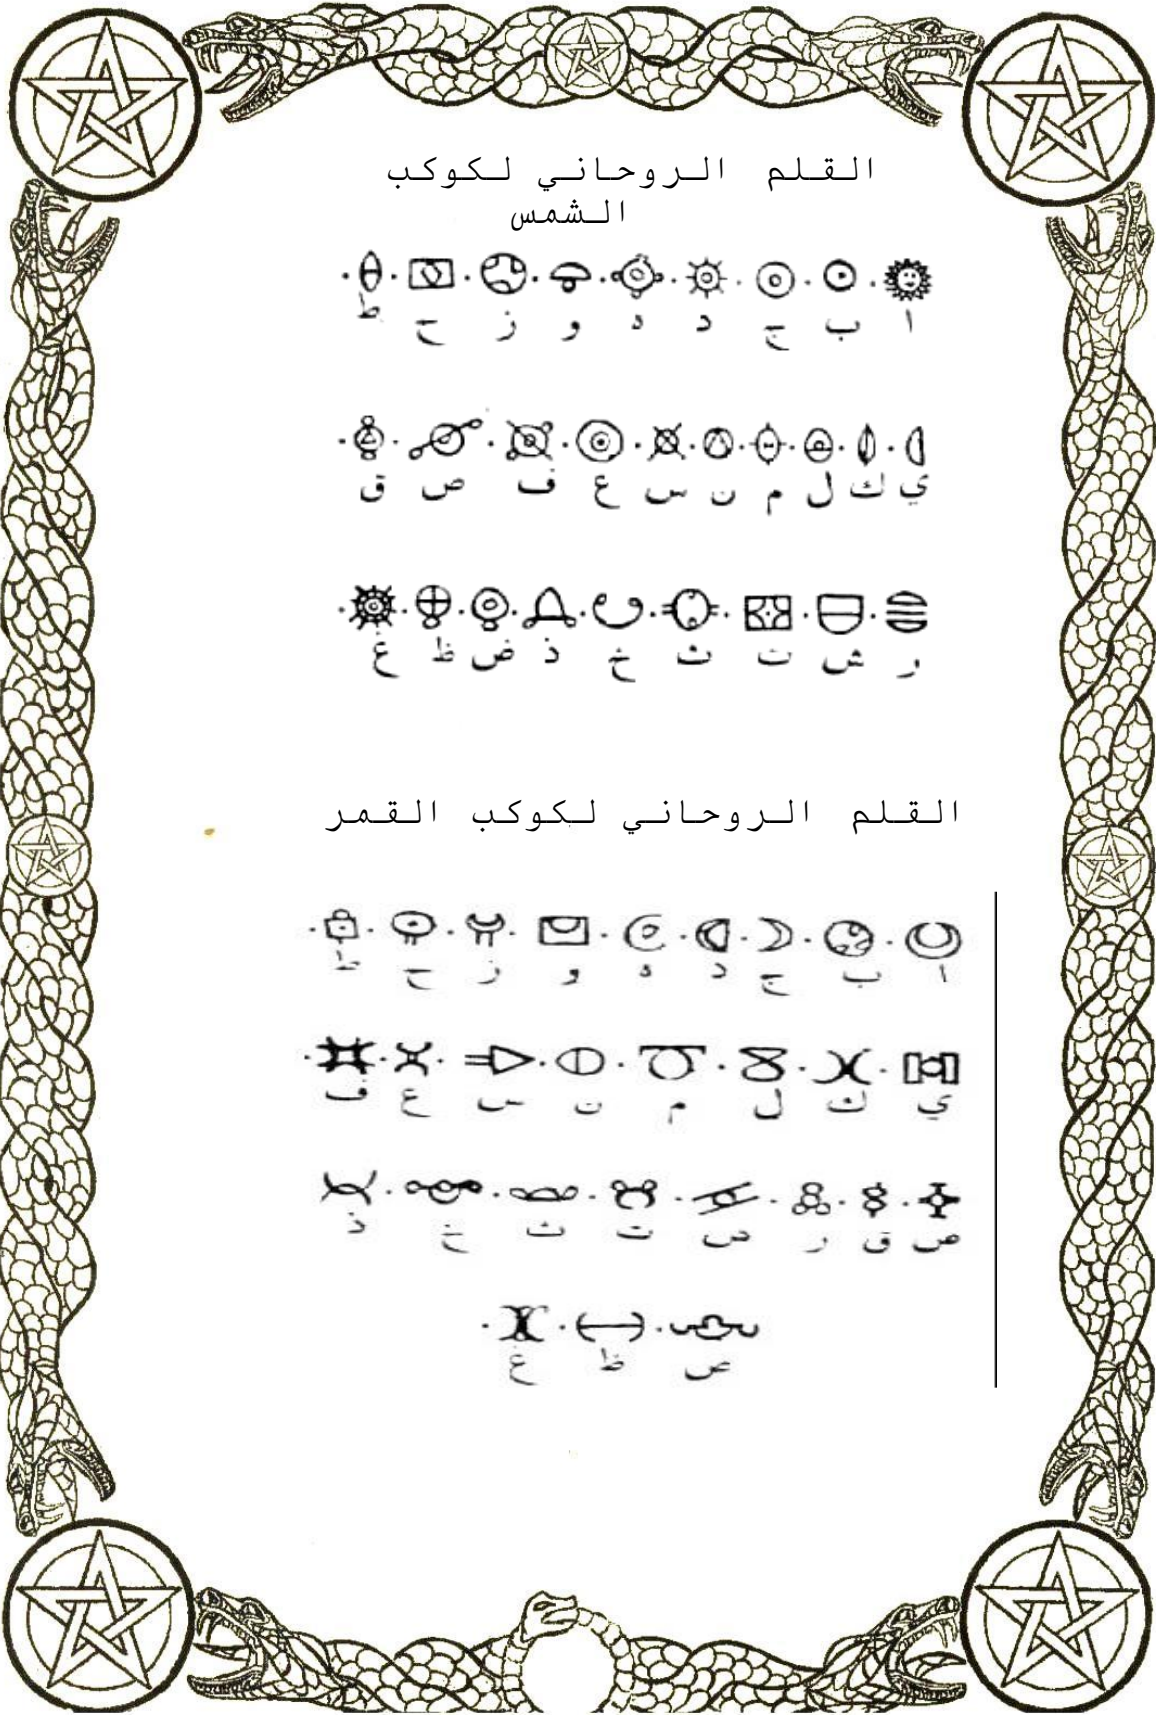 القلم الروحاني لكوكب
الشمس
ا ب ج د ه و ز ح ط
ي ك ل م ن س ع ف ص ق
ر ش ت ث خ ذ ض ظ غ
القلم الروحاني لكوكب القمر
ا ب ج د ه و ز ح ط
ي ك ل م ن س ع ف
ص ق ر س ت ث خ ذ
ص ظ غ